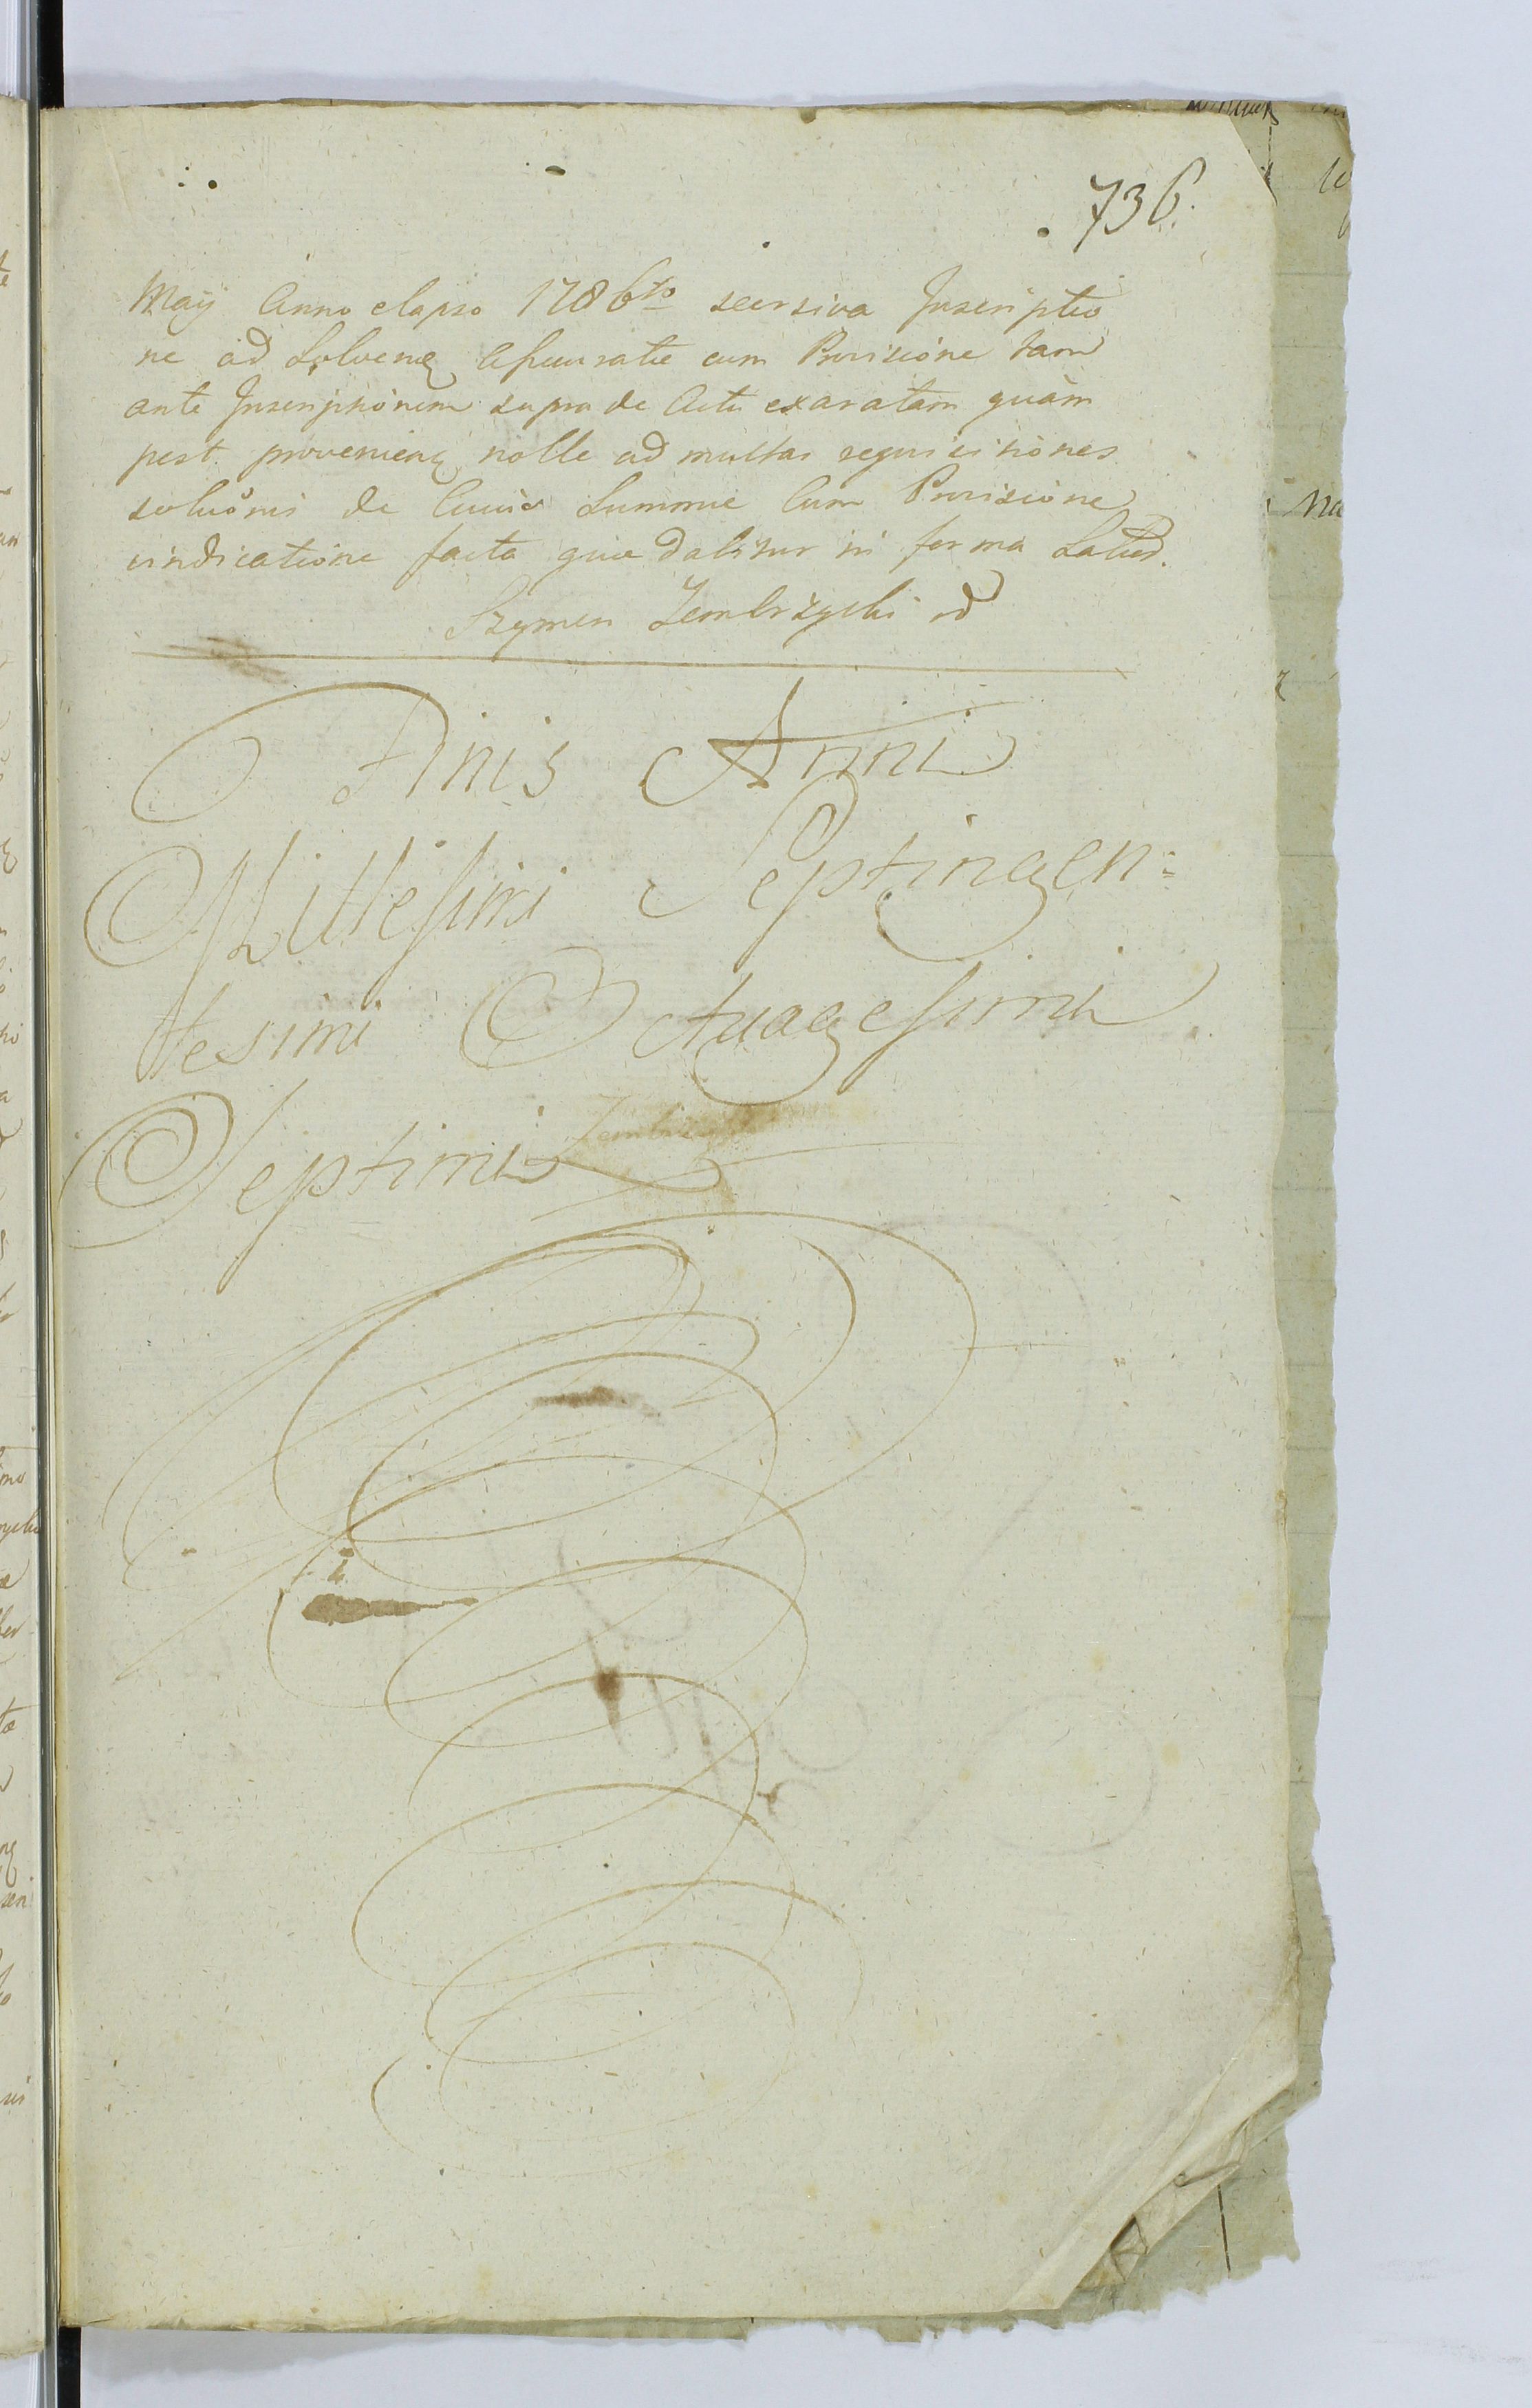 736.
Maij Anno elapso 1786to seorsiva Inscriptio
ne ad Solvend Assecuratae cum Provisione tam
ante Inscriptionem supra de Actu exaratam quàm
post provenien nolle ad multas requisitiones
soluõnis de Summae Cum Provisione
vindicatione facta quia dabitur in forma Latiori.
Szymon Zembrzycki
Finis Anni
Millesimi Septingen=
tesimi Octuagesimi
Septimi